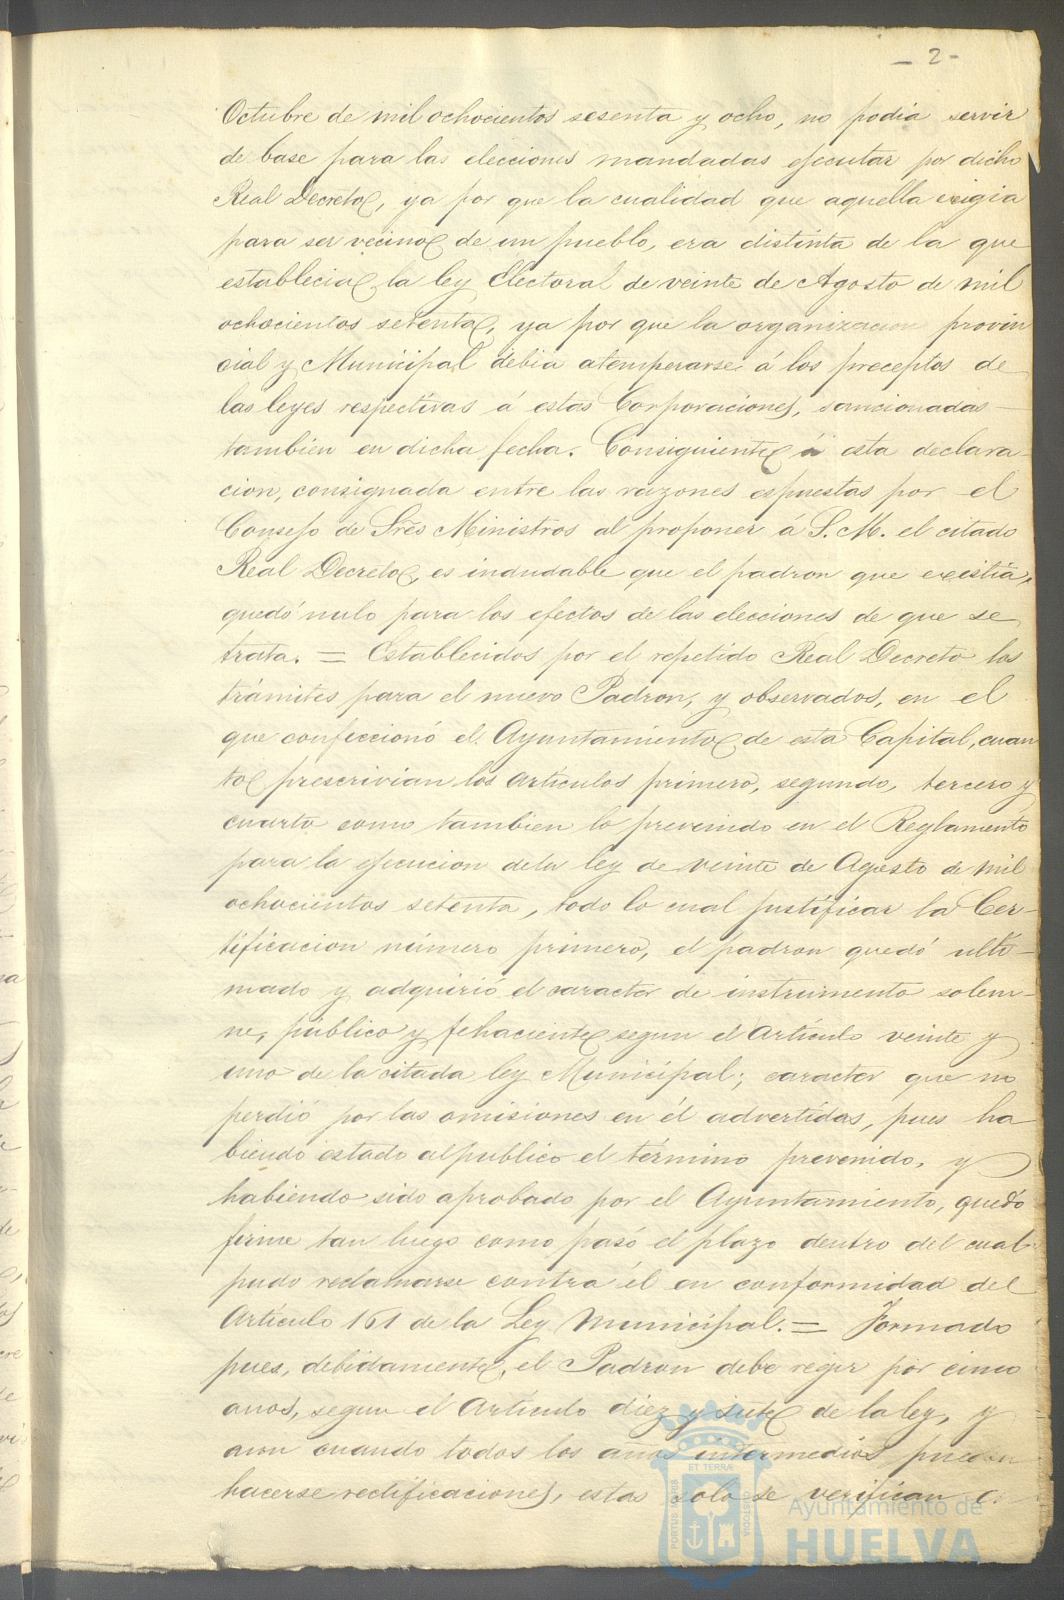 - 2 -
Octubre de mil ochocientos sesenta y ocho, no podia servir
de base para las elecciones mandadas ejecutar por dicho
Real Decreto, ya por que la cualidad que aquella exigia
para ser vecino de un pueblo, era distinta de la que
establecia la ley Electoral de veinte de Agosto de mil
ochocientos setenta, ya por que la organizacion provin
cial y Municipal debia atemperarse á los preceptos de
las leyes respectivas á estas Corporaciones, sancionadas
tambien en dicha fecha. Consiguiente á esta declara-
cion, consignada entre las razones espuestas por el
Consejo de Sres Ministros al proponer á S. M. el citado
Real Decreto, es indudable que el padron que existia,
quedó nulo para los efectos de las elecciones de que se
trata. = Establecidos por el repetido Real Decreto los
trámites para el nuevo Padron, y observados, en el
que confeccionó el Ayuntamiento de esta Capital, cuan
to prescrivian los artículos primero, segundo, tercero y
cuarto como tambien lo prevenido en el Reglamento
para la ejecucion dela ley de veinte de Agosto de mil
ochocientos setenta, todo lo cual justificar la Cer-
tificacion número primero, el padron quedó ulti-
mado y adquirió el caracter de instrumento solem-
ne, público y fehaciente segun el Artículo veinte y
uno de la citada ley Municipal; caracter que no
perdió por las omisiones en él advertidas, pues ha
biendo estado al publico el término prevenido, y
habiendo sido aprobado por el Ayuntamiento, quedó
firme tan luego como pasó el plazo dentro del cual
pudo reclamarse contra él en conformidad del
Artículo 161 de la Ley Municipal. = Formado
pues, debidamente, el Padron debe regir por cinco
anos, segun el Artículo diez y siete de la ley, y
aun cuando todos los anos intermedios puedan
hacerse rectificaciones, estas solo se verifican
PORTUS MARIS
ET TERRÆ
CUSTODIA
Ayuntamiento de
HUELVA